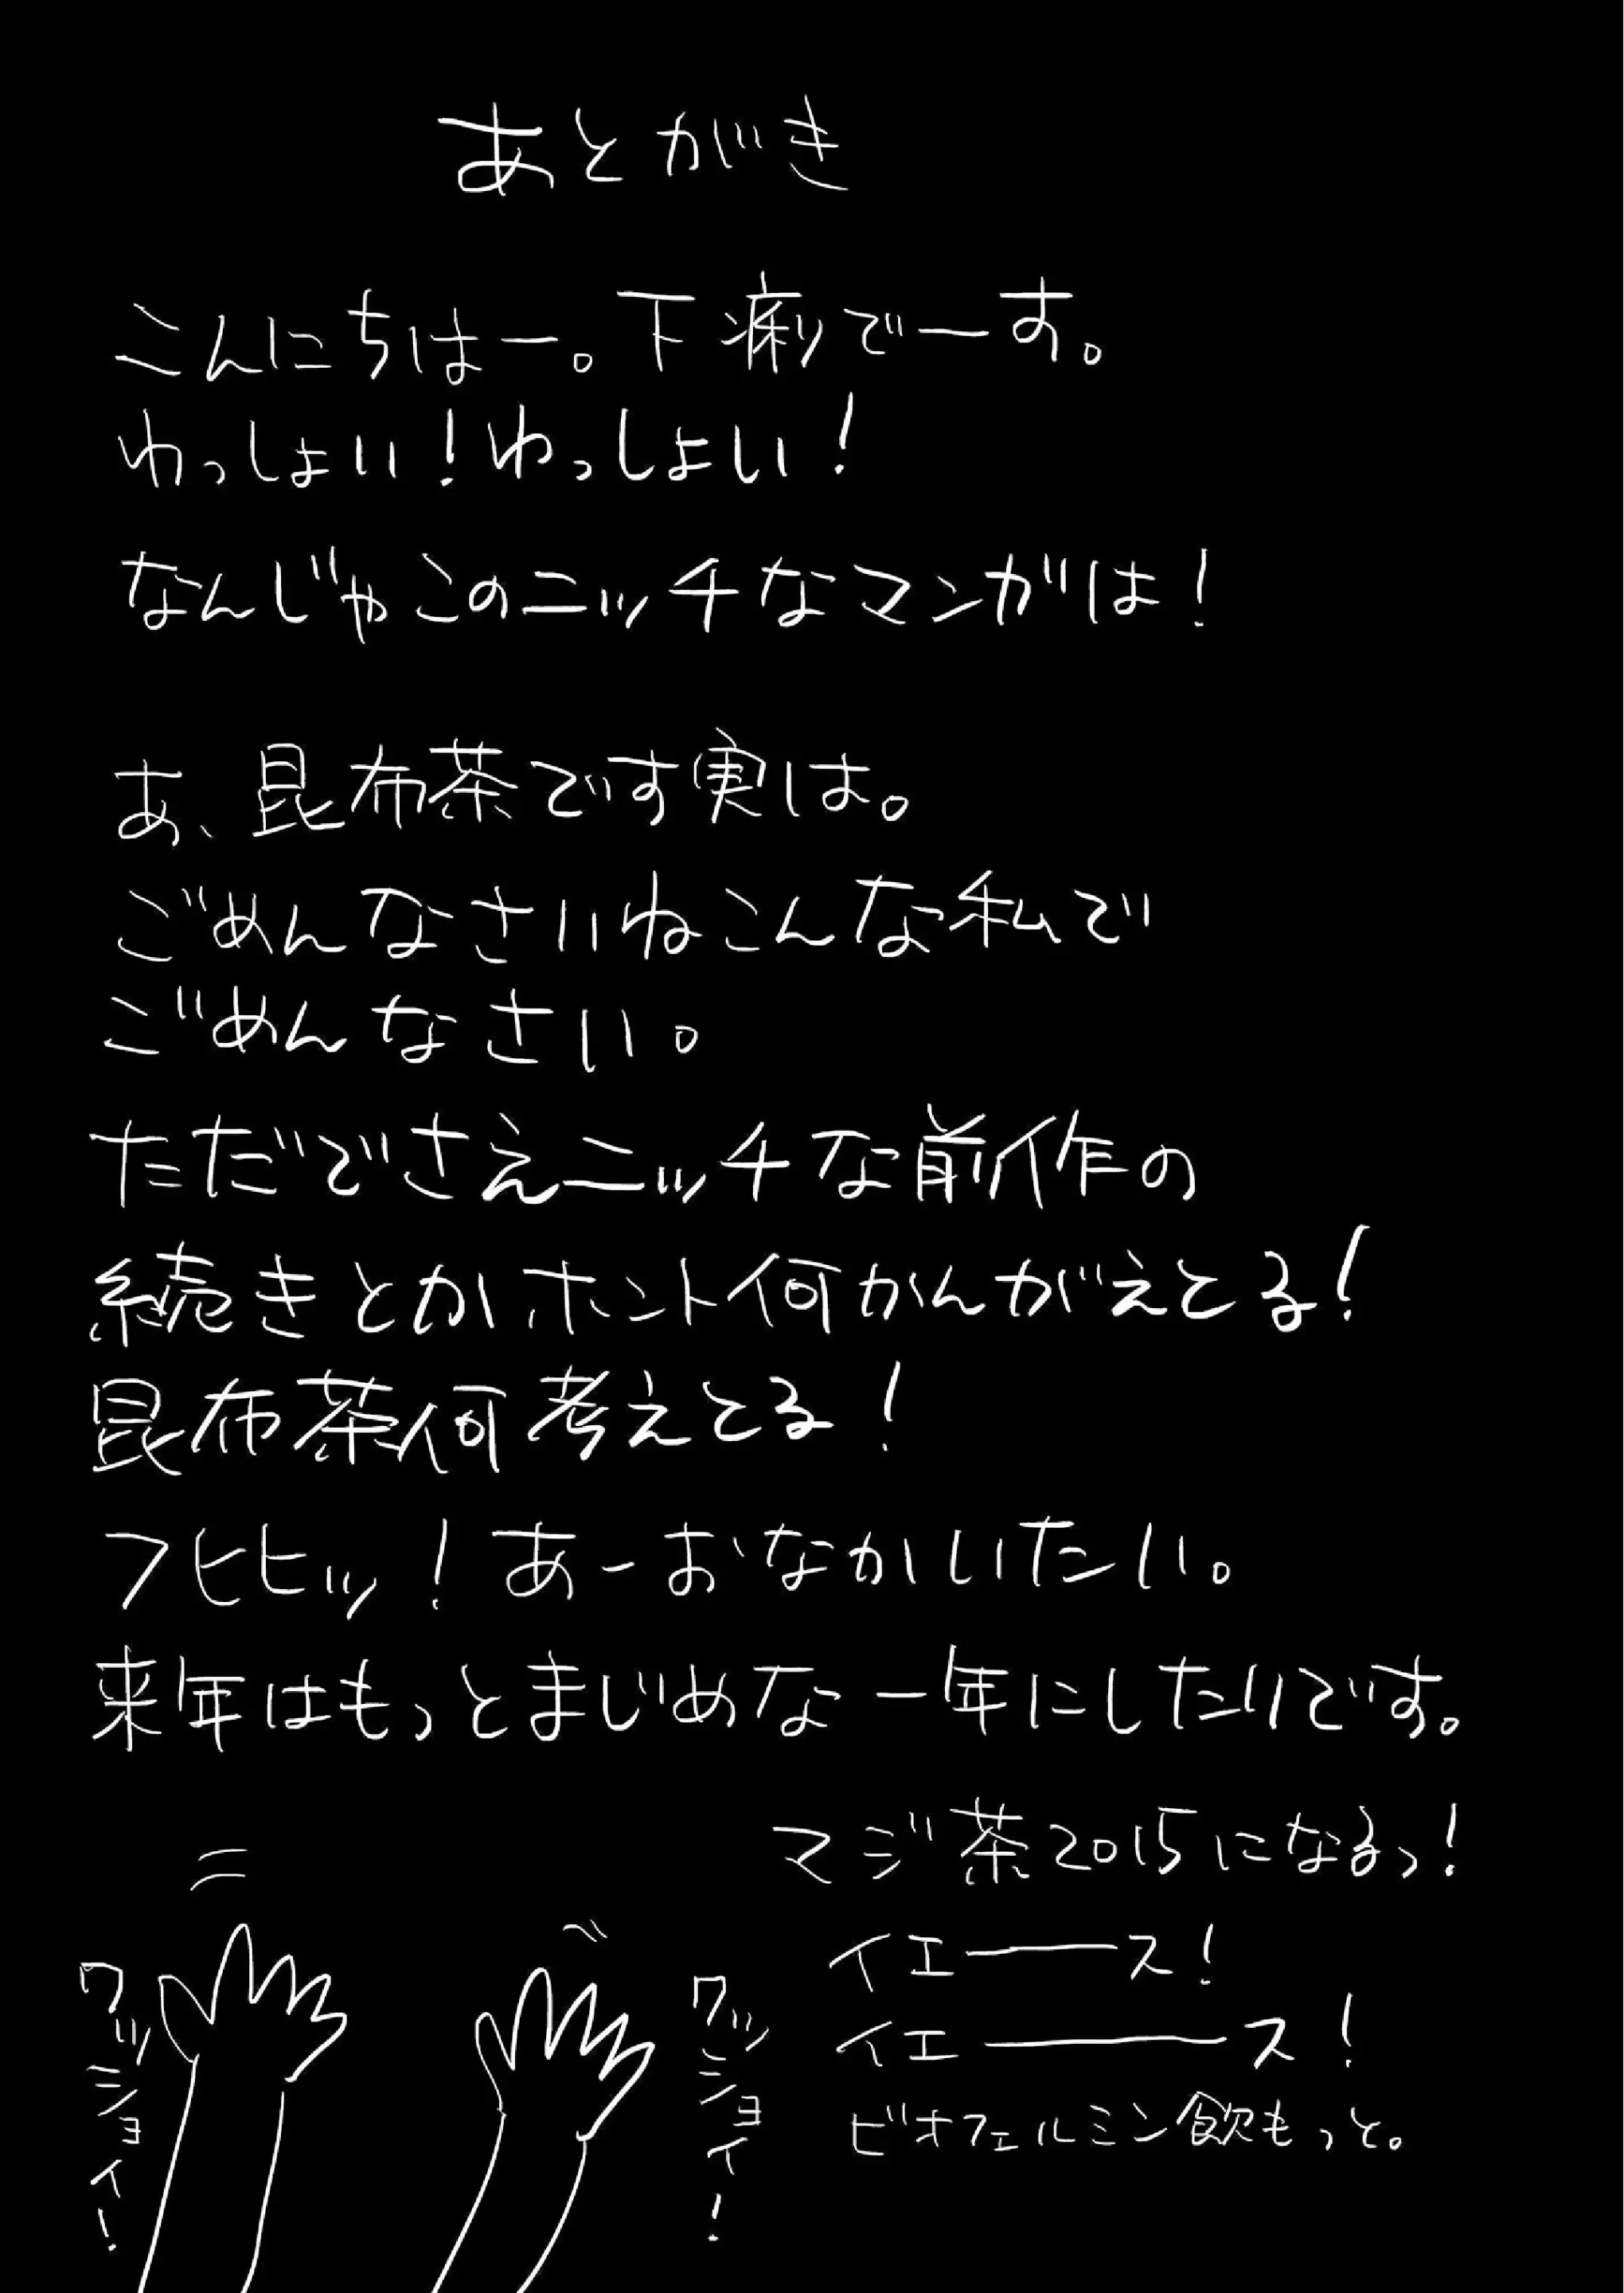 あとがき
こんにちはー。下痢でーす。
わっしょい!わっしょい!
なんじゃこのニッチなマンガは!
あ、昆布茶です実は。
ごめんなさいねこんな私で
ごめんなさい。
ただでさえニッチな前作の
続きとかホント何かんがえとる!
昆布茶何考えとる!
フヒヒッ!あーおなかいたい。
来年はもっとまじめな一年にしたいです。
マジ茶2015になるっ!
イエーース!
イエーーース!
ビオフェルミン飲もっと。
ワッショイ!
ワッショイ!